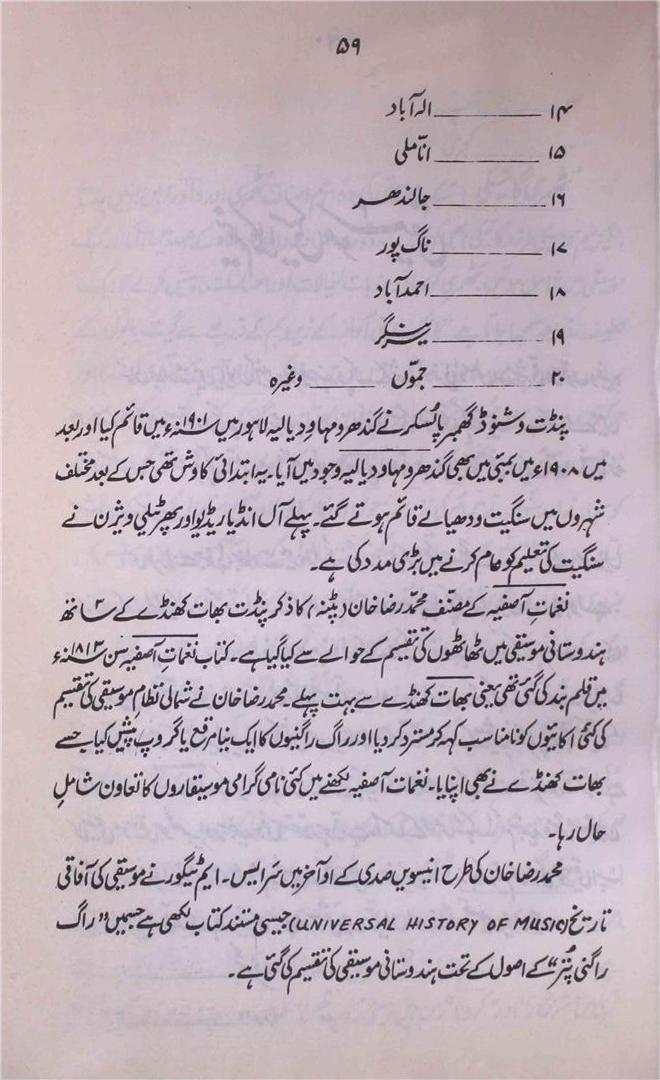 ۵۹
۱۴ ــــــــ الہ آباد
۱۵ ــــــــ اناملی
۱۶ ــــــــ جالندھر
۱۷ ــــــــ ناگ پور
۱۸ ــــــــ احمدآباد
۱۹ ــــــــ سرینگر
۲۰ ــــــــ جموّں ــــــــ وغیرہ
پنڈت وشنو ڈگھمبر پالُسکر نے گندھرو مہاودیالیہ لاہور میں ۱۹۰۱ء میں قائم کیا اور بعد
میں ۱۹۰۸ء میں بمبئی میں بھی گندھرو مہاودیالیہ وجود میں آیا۔ یہ ابتدائی کاوش تھی جس کے بعد مختلف
شہروں میں سنگیت ودھیالے قائم ہوتے گئے۔ پہلے آل انڈیا ریڈیو اور پھر ٹیلی ویژن نے
سنگیت کی تعلیم کو عام کرنے میں بڑی مدد کی ہے۔
نغماتِ آصفیہ کے مصنّف محمّد رضا خان (پٹنہ) کا ذکر پنڈت بھات کھنڈے کے ساتھ
ہندوستانی موسیقی میں ٹھاٹھوں کی تقسیم کے حوالے سے کیا گیا ہے۔ کتاب نغماتِ آصفیہ سن ۱۸۱۳ء
میں قلم بند کی گئی تھی یعنی بھات کھنڈے سے بہت پہلے۔ محمد رضا خان نے شمالی نظام موسیقی کی تقسیم
کی کئی اکائیوں کو نامناسب کہہ کر مسترد کر دیا اور راگ راگنیوں کا ایک نیا مرقع یا گروپ پیش کیا جسے
بھات کھنڈے نے بھی اپنایا۔ نغمات آصفیہ لکھنے میں کئی نامی گرامی موسیقاروں کا تعاون شاملِ
حال رہا۔
محمد رضا خان کی طرح انیسویں صدی کے اوآخر میں سَر ایس۔ ایم ٹیگور نے موسیقی کی آفاقی
تاریخ (UNIVERSAL HISTORY OF MUSIC) جیسی مستند کتاب لکھی ہے جسمیں "راگ
راگنی پُتر" کے اصول کے تحت ہندوستانی موسیقی کی تقسیم کی گئی ہے۔